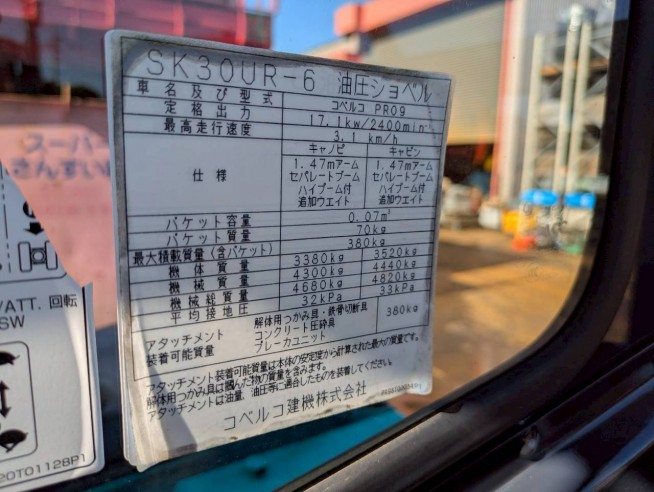 SK30UR-6 油圧ショベル
車名及び型式 コベルコ PR09
定格出力 17.1kw/2400min⁻¹
最高走行速度 3.1 km/h
仕様 キャノピ キャビン
1.47mアーム 1.47mアーム
セパレートブーム セパレートブーム
ハイブーム付 ハイブーム付
追加ウエイト 追加ウエイト
バケット容量 0.07m³
バケット質量 70kg
最大積載質量(含バケット) 380kg
機体質量 3380kg 3520kg
機械質量 4300kg 4440kg
機械総質量 4680kg 4820kg
平均接地圧 32kPa 33kPa
アタッチメント装着可能質量 解体用つかみ具・鉄骨切断具 380kg
コンクリート圧砕具
ブレーカユニット
アタッチメント装着可能質量は本体の安定度から計算された最大の質量です。
解体用つかみ具は掴んだ物の質量を含みます。
アタッチメントは油量、油圧等に適合したものを装着してください。
コベルコ建機株式会社
スーパー
/ATT. 回転
SW
20T01128P1